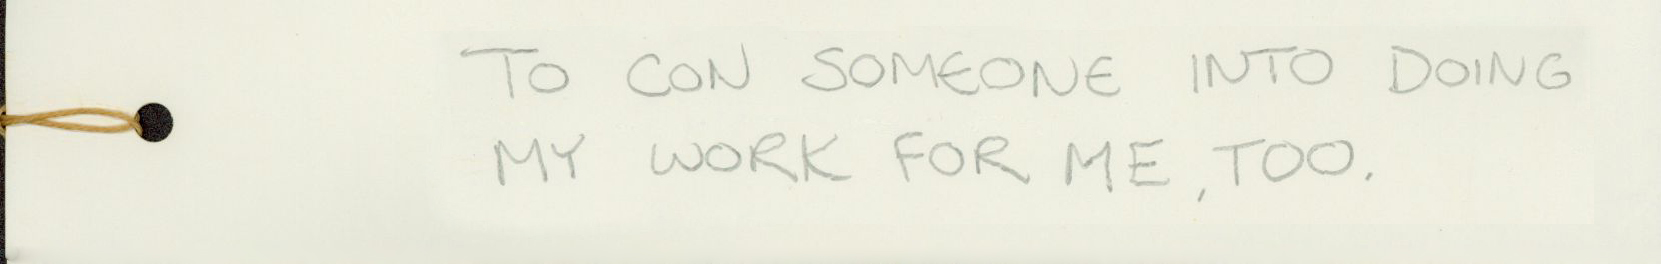 TO CON SOMEONE INTO DOING
MY WORK FOR ME, TOO.